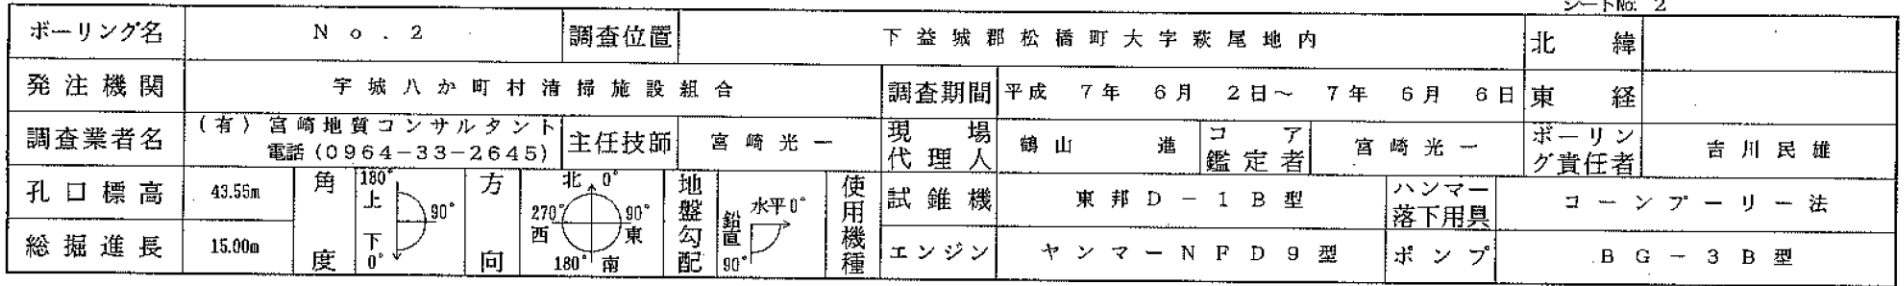 シートNo. 2
ボーリング名 No.2 調査位置 下益城郡松橋町大字萩尾地内 北緯
発注機関 宇城八か町村清掃施設組合 調査期間 平成 7年 6月 2日〜 7年 6月 6日 東経
調査業者名 (有)宮崎地質コンサルタント 電話(0964-33-2645) 主任技師 宮崎光一 現場代理人 鶴山 進 コア鑑定者 宮崎光一 ボーリング責任者 吉川民雄
孔口標高 43.55m 角度 180° 上 90° 下 0° 方向 北 0° 270° 西 90° 東 180° 南 地盤勾配 水平0° 鉛直 90° 使用機種 試錐機 東邦D-1B型 ハンマー落下用具 コーンプーリー法
総掘進長 15.00m エンジン ヤンマーNFD9型 ポンプ BG-3B型